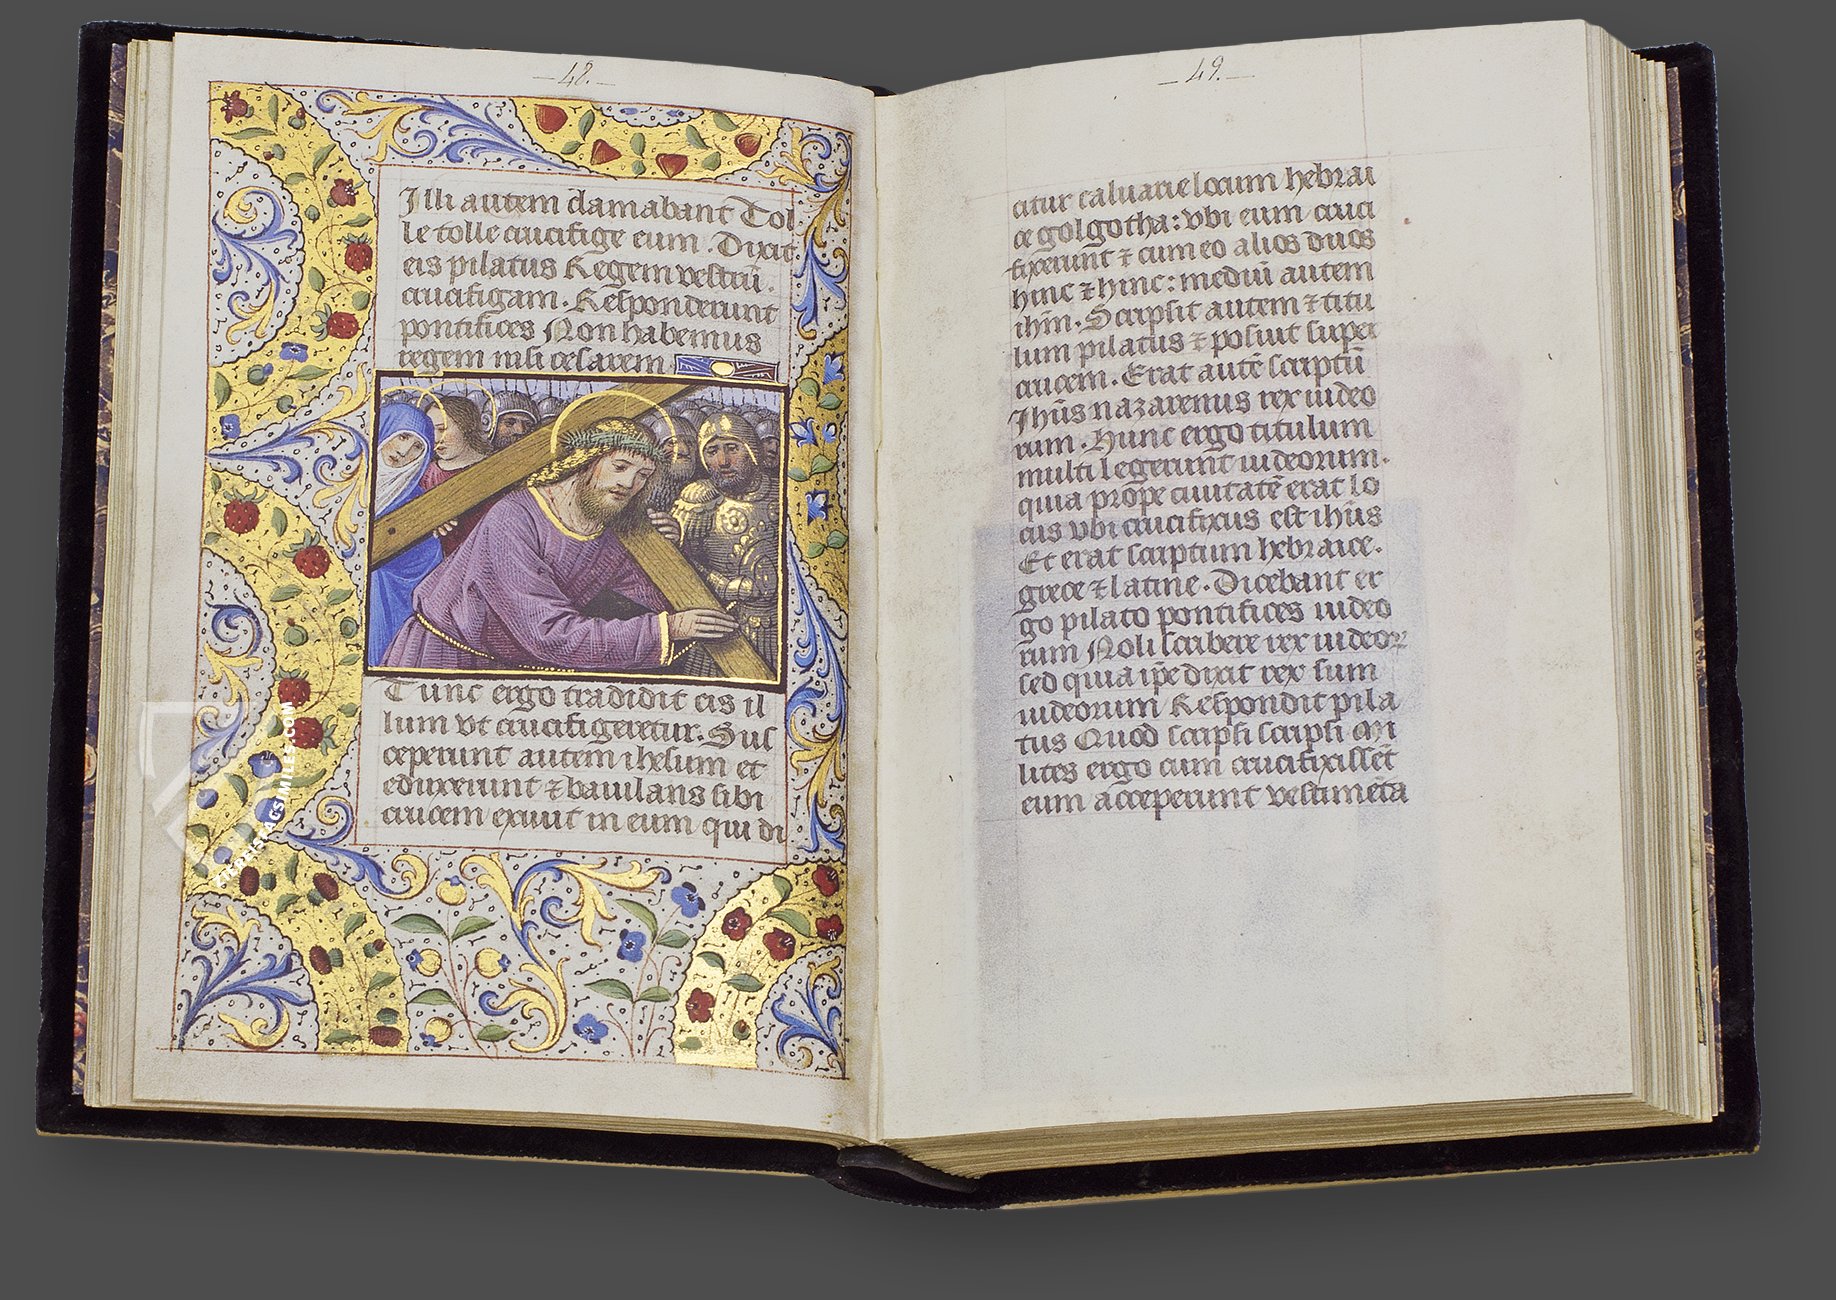 48.
Illi autem clamabant Tol
le tolle crucifige eum. Dixit
eis pilatus Regem vestrū.
crucifigam. Responderunt
pontifices Non habemus
regem nisi cesarem
Tunc ergo tradidit eis il
lum vt crucifigeretur. Sus
ceperunt autem ihesum et
eduxerunt ⁊ baiulans sibi
crucem exiuit in eum qui di
ZIEREISFACSIMILES.COM
49.
citur caluarie locum hebrai
ce golgotha: vbi eum cruci
fixerunt ⁊ cum eo alios duos
hinc ⁊ hinc: mediū autem
ihm̄. Scripsit autem ⁊ titu
lum pilatus ⁊ posuit super
crucem. Erat autē scriptū
Ihūs nazarenus rex iudeo
rum. Hunc ergo titulum
multi legerunt iudeorum.
quia prope ciuitatē erat lo
cus vbi crucifixus est ihūs
Et erat scriptum hebraice.
grece ⁊ latine. Dicebant er
go pilato pontifices iudeo
rum Noli scribere rex iudeoꝝ
sed quia ip̄e dixit rex sum
iudeorum Respondit pila
tus Quod scripsi scripsi Mi
lites ergo cum crucifixissēt
eum acceperunt vestimēta